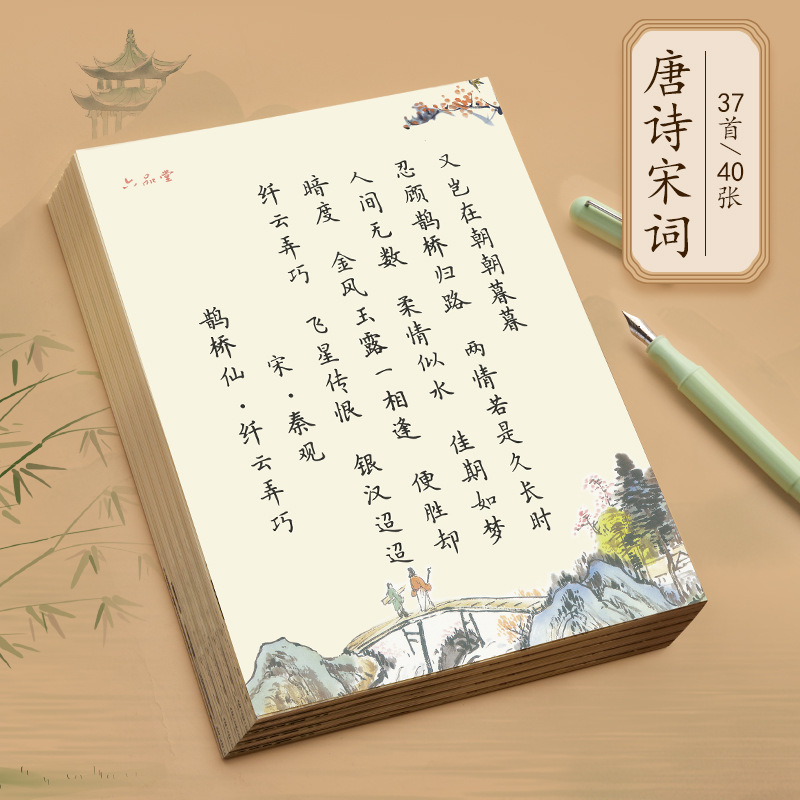 六品堂
鹊桥仙·纤云弄巧
宋·秦观
纤云弄巧 飞星传恨 银汉迢迢
暗度 金风玉露一相逢 便胜却
人间无数 柔情似水 佳期如梦
忍顾鹊桥归路 两情若是久长时
又岂在朝朝暮暮
唐诗宋词
37首/40张